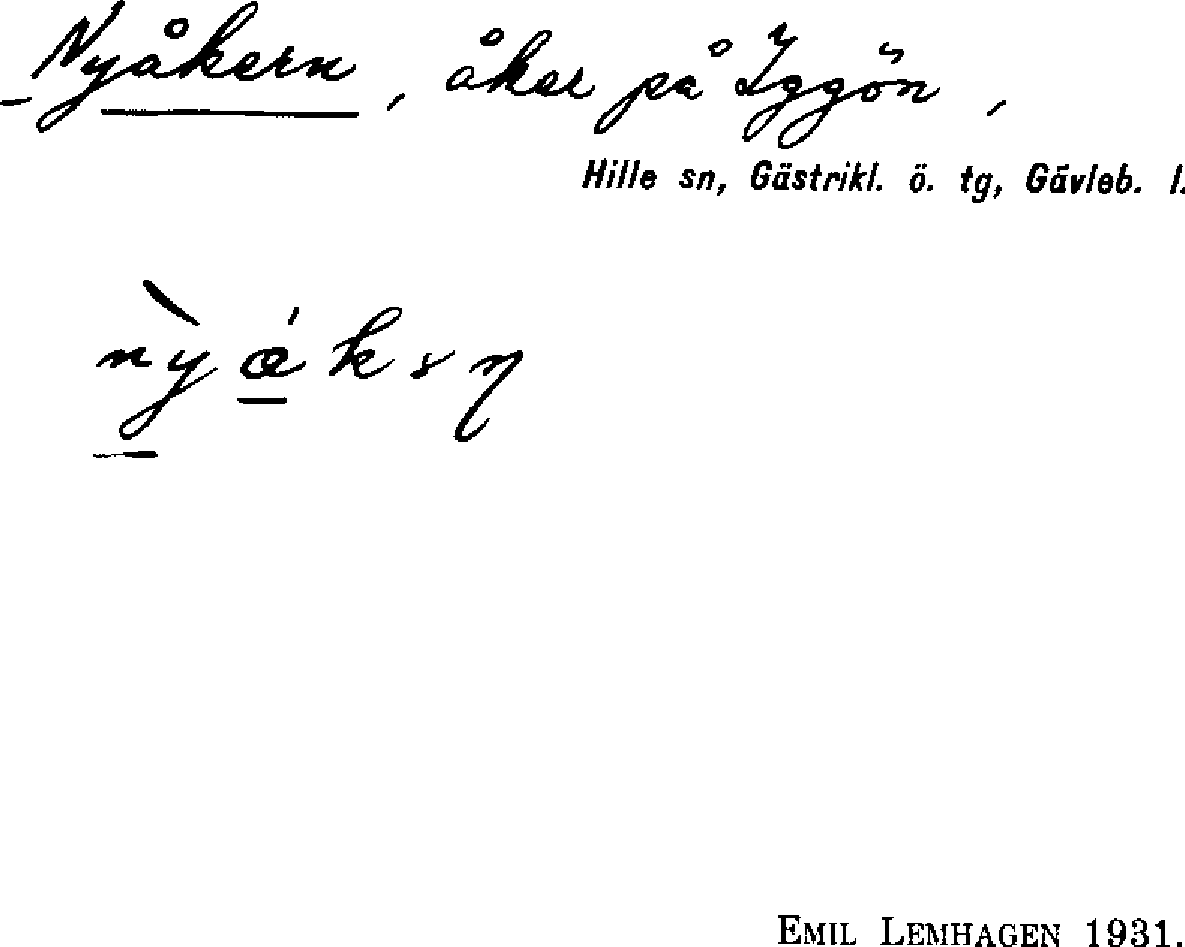 Nyåkern, åker på Iggön,
Hille sn, Gästrikl. ö. tg, Gävleb. l.
EMIL LEMHAGEN 1931.